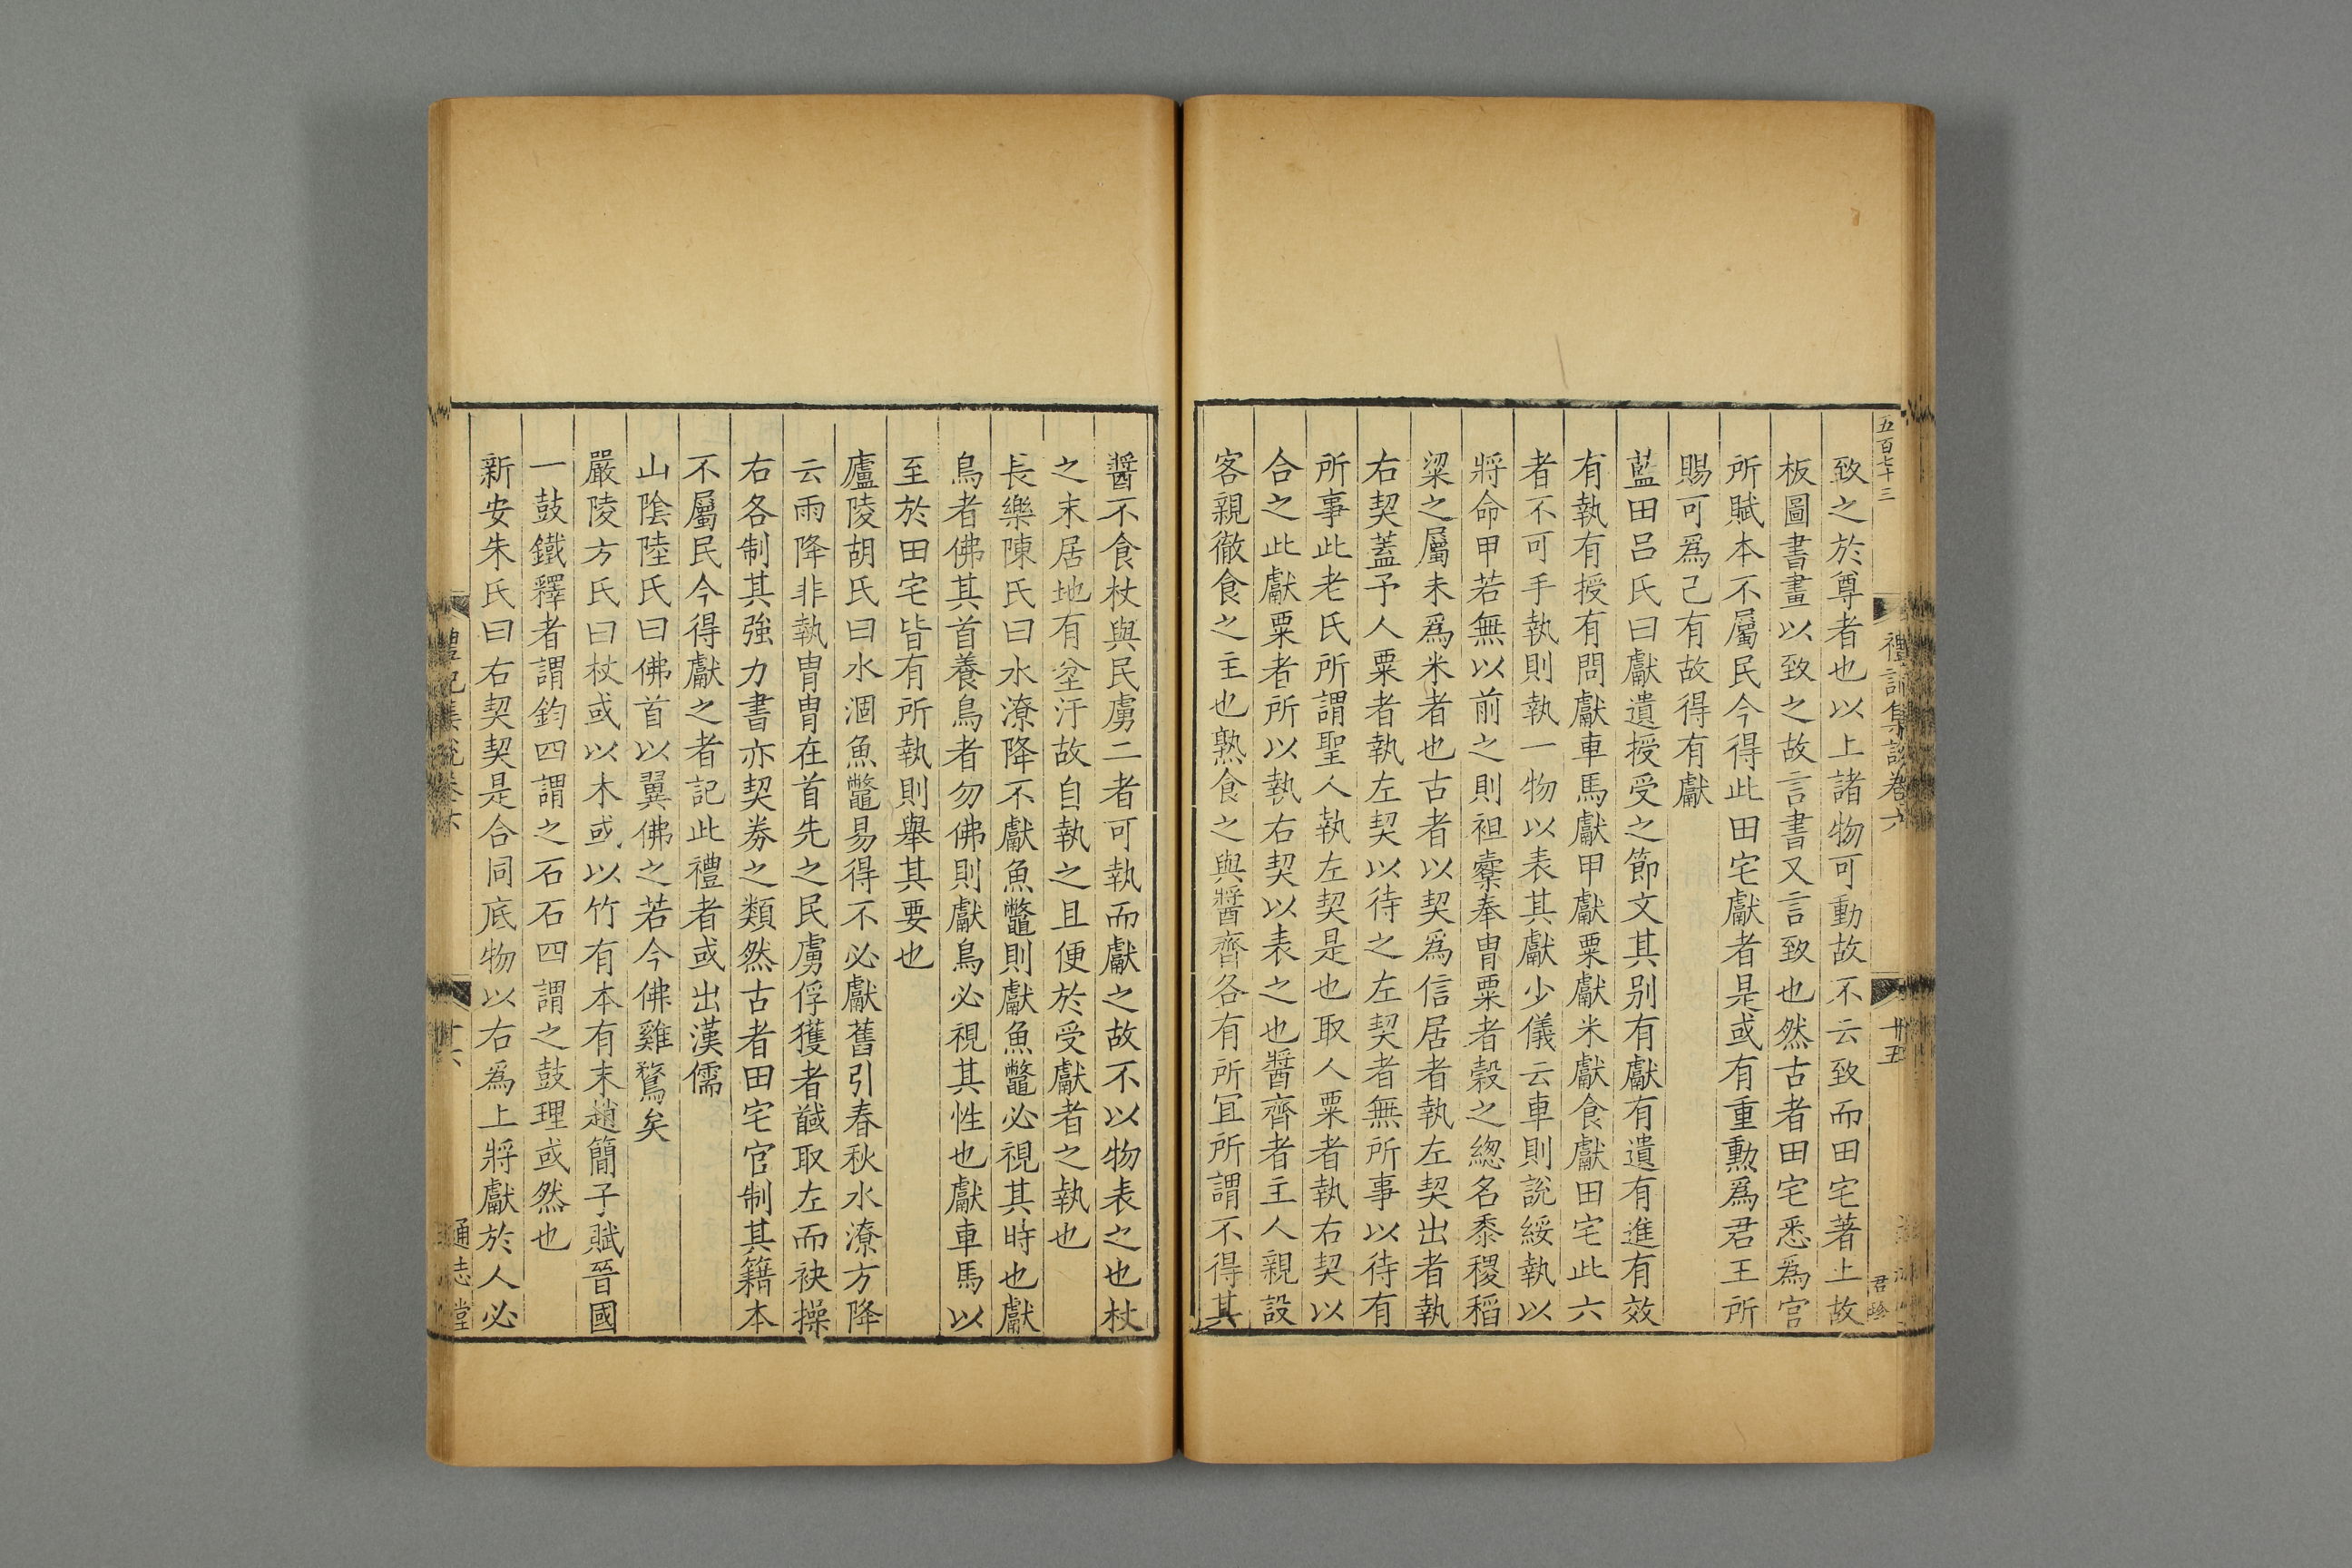 五百七十三
禮記集說卷六
卅五
君珍
致之於尊者也以上諸物可動故不云致而田宅著上故
板圖書畫以致之故言書又言致也然古者田宅悉為官
所賦本不屬民今得此田宅獻者是或有重勳為君王所
賜可為己有故得有獻
藍田呂氏曰獻遺授受之節文其別有獻有遺有進有效
有執有授有問獻車馬獻甲獻粟獻米獻食獻田宅此六
者不可手執則執一物以表其獻少儀云車則說綏執以
將命甲若無以前之則袒櫜奉冑粟者榖之總名黍稷稻
粱之屬未為米者也古者以契為信居者執左契出者執
右契蓋予人粟者執左契以待之左契者無所事以待有
所事此老氏所謂聖人執左契是也取人粟者執右契以
合之此獻粟者所以執右契以表之也醬齊者主人親設
客親徹食之主也孰食之與醬齊各有所冝所謂不得其
醬不食杖與民虜二者可執而獻之故不以物表之也杖
之末居地有坌汙故自執之且便於受獻者之執也
長樂陳氏曰水潦降不獻魚鼈則獻魚鼈必視其時也獻
鳥者佛其首養鳥者勿佛則獻鳥必視其性也獻車馬以
至於田宅皆有所執則舉其要也
廬陵胡氏曰水涸魚鼈易得不必獻舊引春秋水潦方降
云雨降非執冑冑在首先之民虜俘獲者馘取左而袂操
右各制其強力書亦契券之類然古者田宅官制其籍本
不屬民今得獻之者記此禮者或出漢儒
山陰陸氏曰佛首以翼佛之若今佛雞鶩矣
嚴陵方氏曰杖或以木或以竹有本有末趙簡子賦晉國
一鼓鐵釋者謂鈞四謂之石石四謂之鼓理或然也
新安朱氏曰右契契是合同底物以右為上將獻於人必
禮記集說卷六
卅六
通志堂